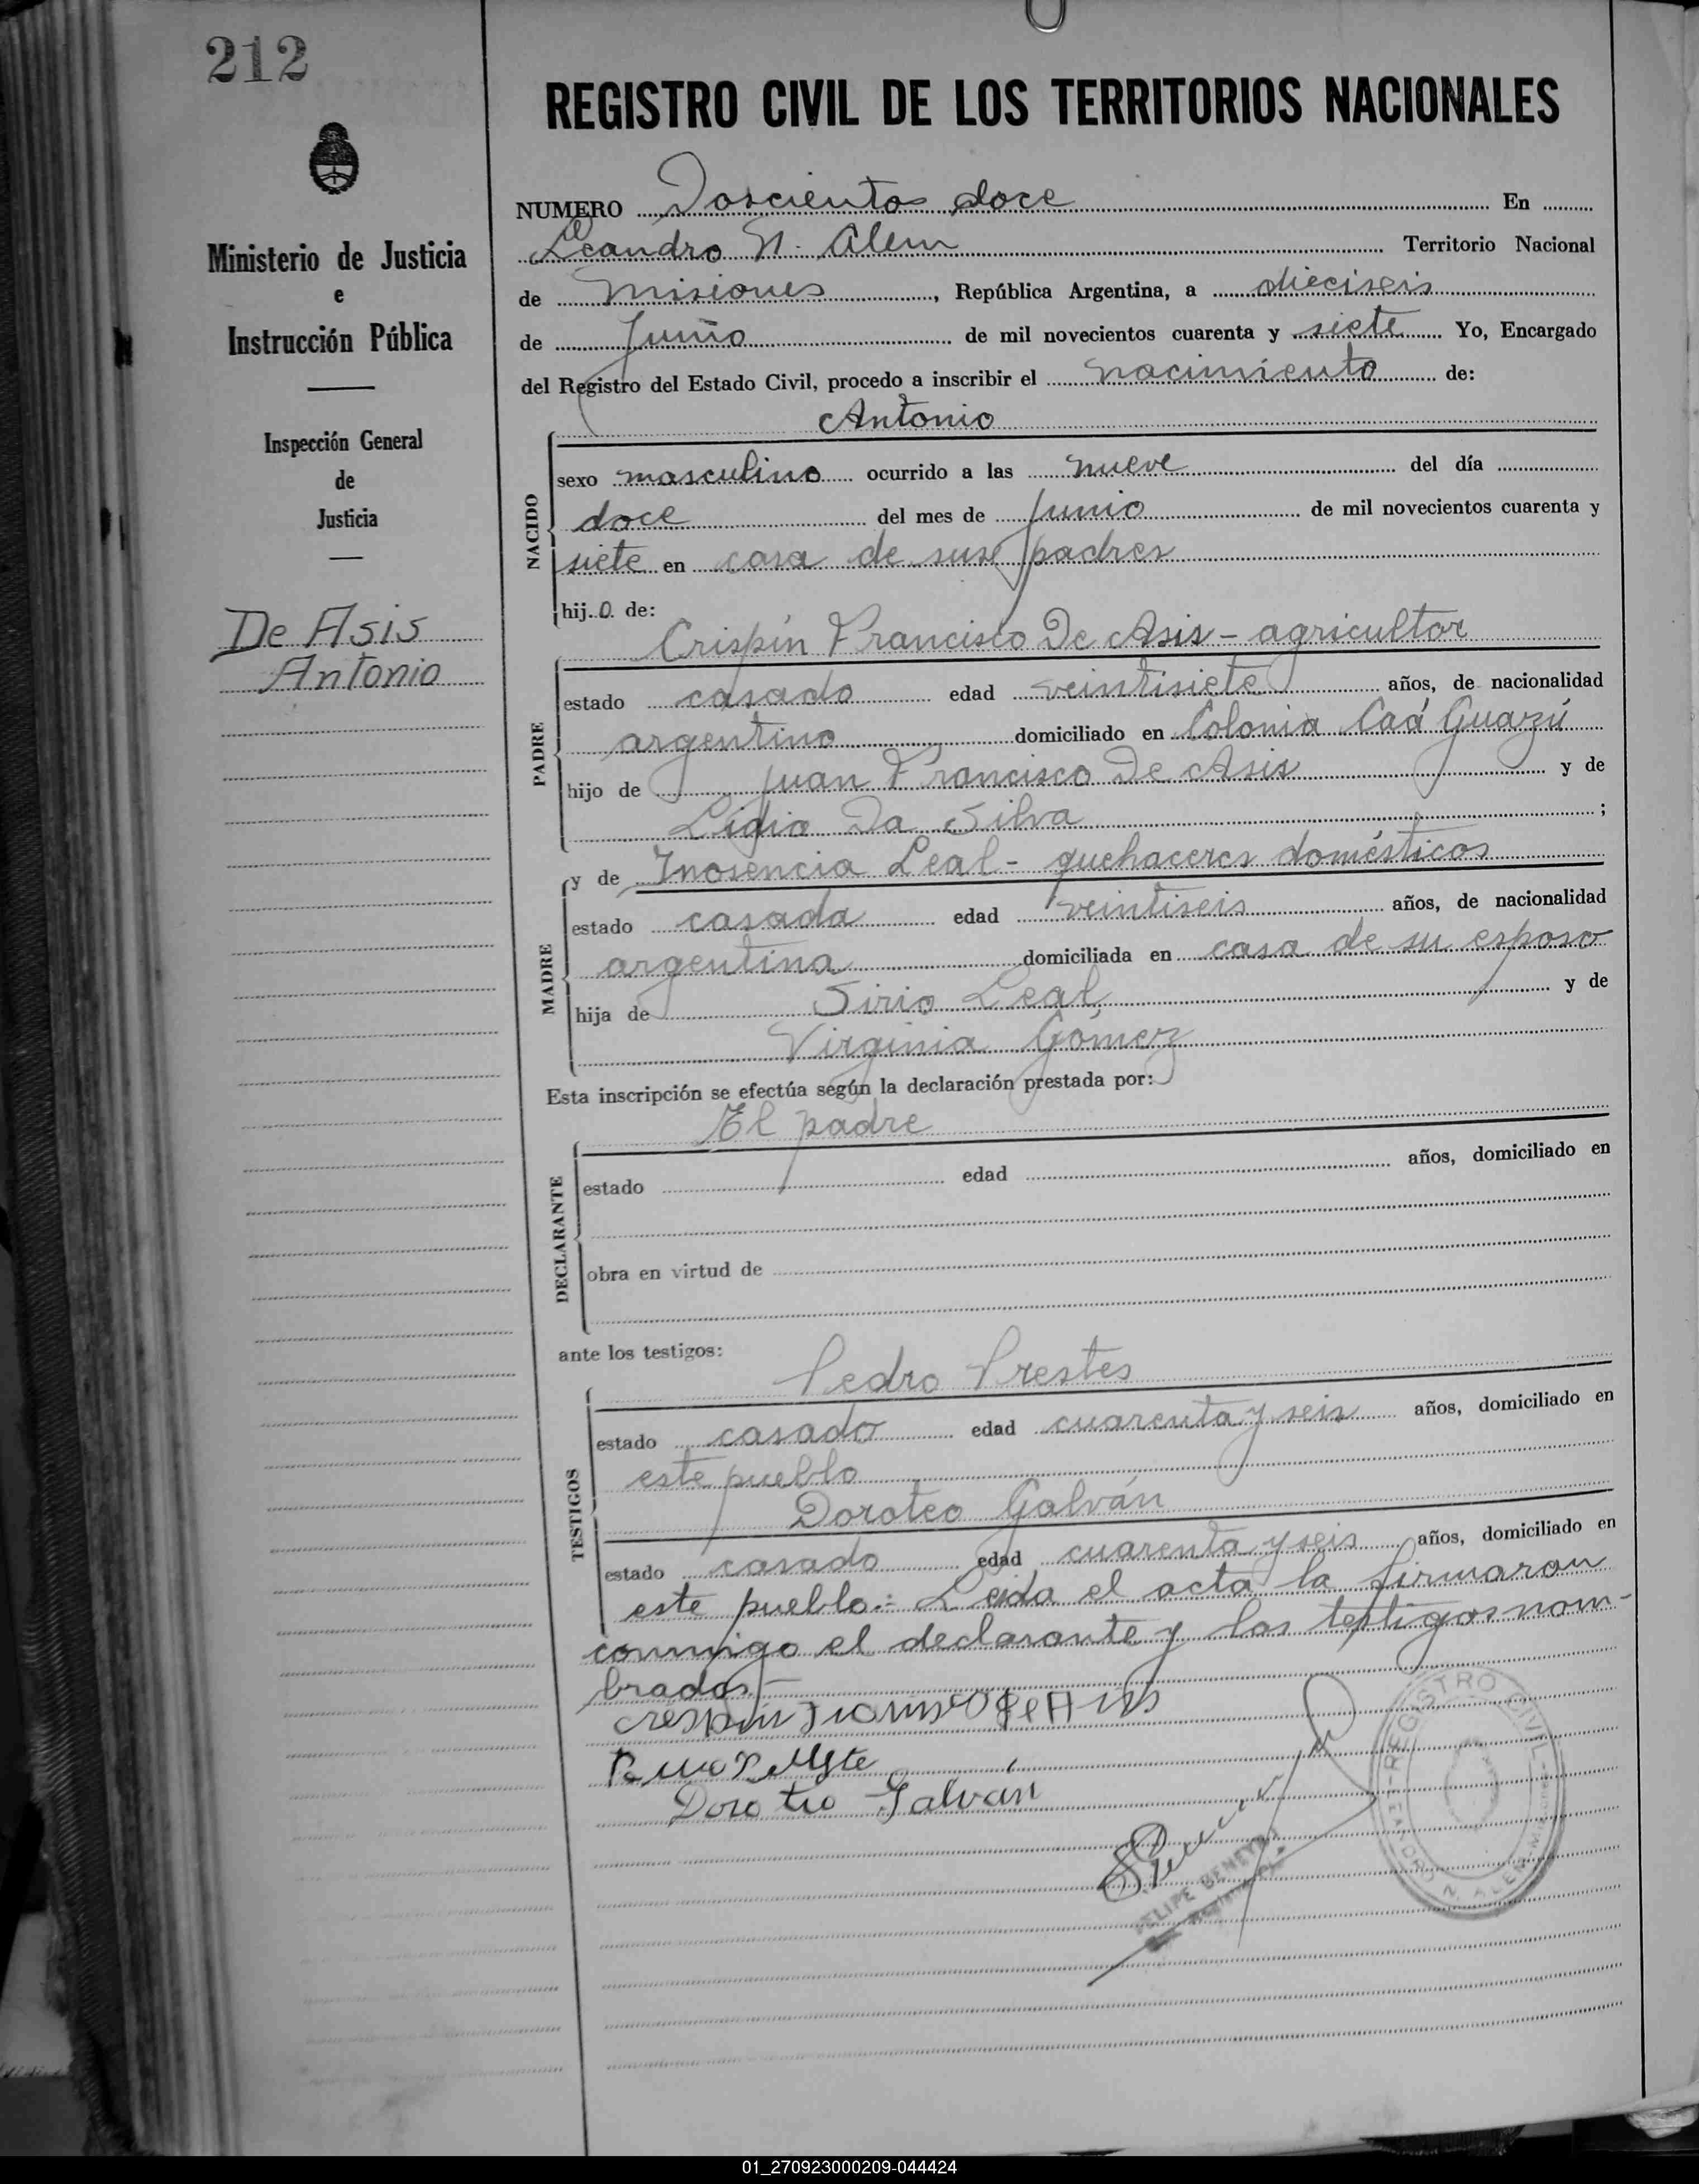 212
REGISTRO CIVIL DE LOS TERRITORIOS NACIONALES
NUMERO Doscientos doce En
Leandro N. Alem Territorio Nacional
de Misiones, República Argentina, a dieciseis
de Junio de mil novecientos cuarenta y siete Yo, Encargado
del Registro del Estado Civil, procedo a inscribir el nacimiento de:
Antonio
Ministerio de Justicia
e
Instrucción Pública
Inspección General
de
Justicia
De Asis
Antonio
NACIDO
sexo masculino ocurrido a las nueve del día
doce del mes de Junio de mil novecientos cuarenta y
siete en casa de sus padres
hijo de:
Crispín Francisco De Asis - agricultor
PADRE
estado casado edad veintisiete años, de nacionalidad
argentino domiciliado en Colonia Caá Guazú
hijo de Juan Francisco De Asis y de
Lidia Da Silva ;
y de Inosencia Leal - quehaceres domésticos
MADRE
estado casada edad veintiseis años, de nacionalidad
argentina domiciliada en casa de su esposo
hija de Sirio Leal y de
Virginia Gómez
Esta inscripción se efectúa según la declaración prestada por:
El padre
DECLARANTE
estado edad años, domiciliado en
obra en virtud de
ante los testigos:
Pedro Prestes
TESTIGOS
estado casado edad cuarenta y seis años, domiciliado en
este pueblo
Doroteo Galván
estado casado edad cuarenta y seis años, domiciliado en
este pueblo.- Leída el acta la firmaron
conmigo el declarante y los testigos nom-
brados.-
Doroteo Galván
REGISTRO CIVIL
LEANDRO N. ALEM - Misiones
FELIPE
01_270923000209-044424